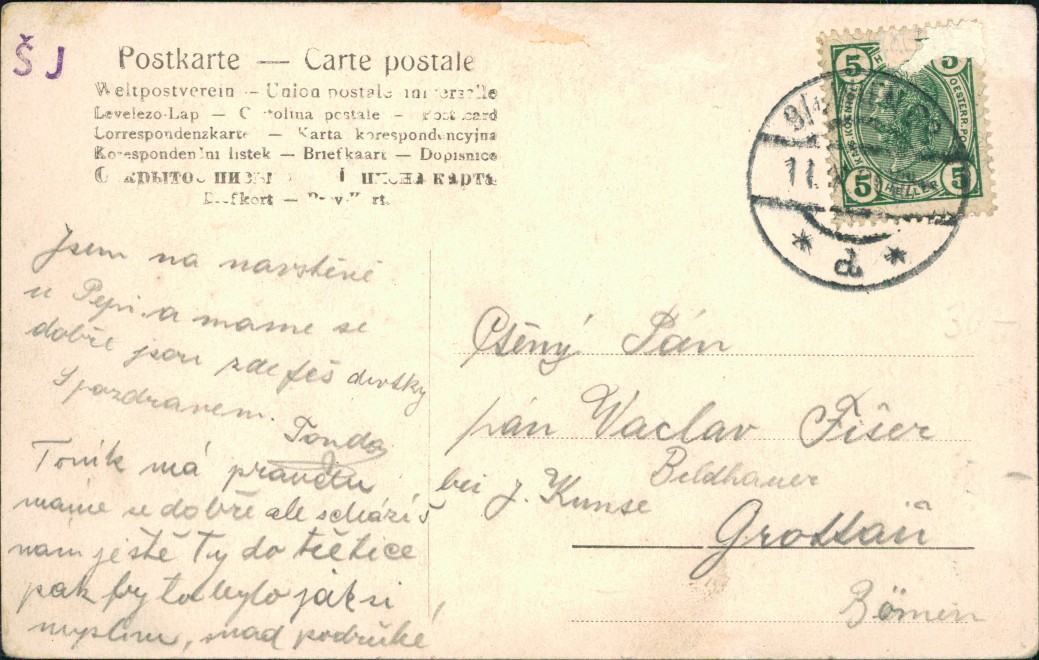 ŠJ
Postkarte — Carte postale
Weltpostverein — Union postale universelle
Levelezo-Lap — Cartolina postale — Post card
Correspondenzkarte — Karta korespondencyjna
Korespondenčni listek — Briefkaart — Dopisnice
карта
Brefkort — Brevkort.
5 5
5 5
HELLER
11.
Jsem na navstěvě
u Pepi. a mame se
dobře jsou zde feš divsky
S pozdravem.
Tonda
Toník má pravdu
máme se dobře ale scházíš
nam ještě Ty do třetice
pak by to bylo jaksi
myslim, snad podruhé
Ctěný Pán
pán Waclav Fišer
Beldhauer
bei J. Kunse
Grottaŭ
Bömen